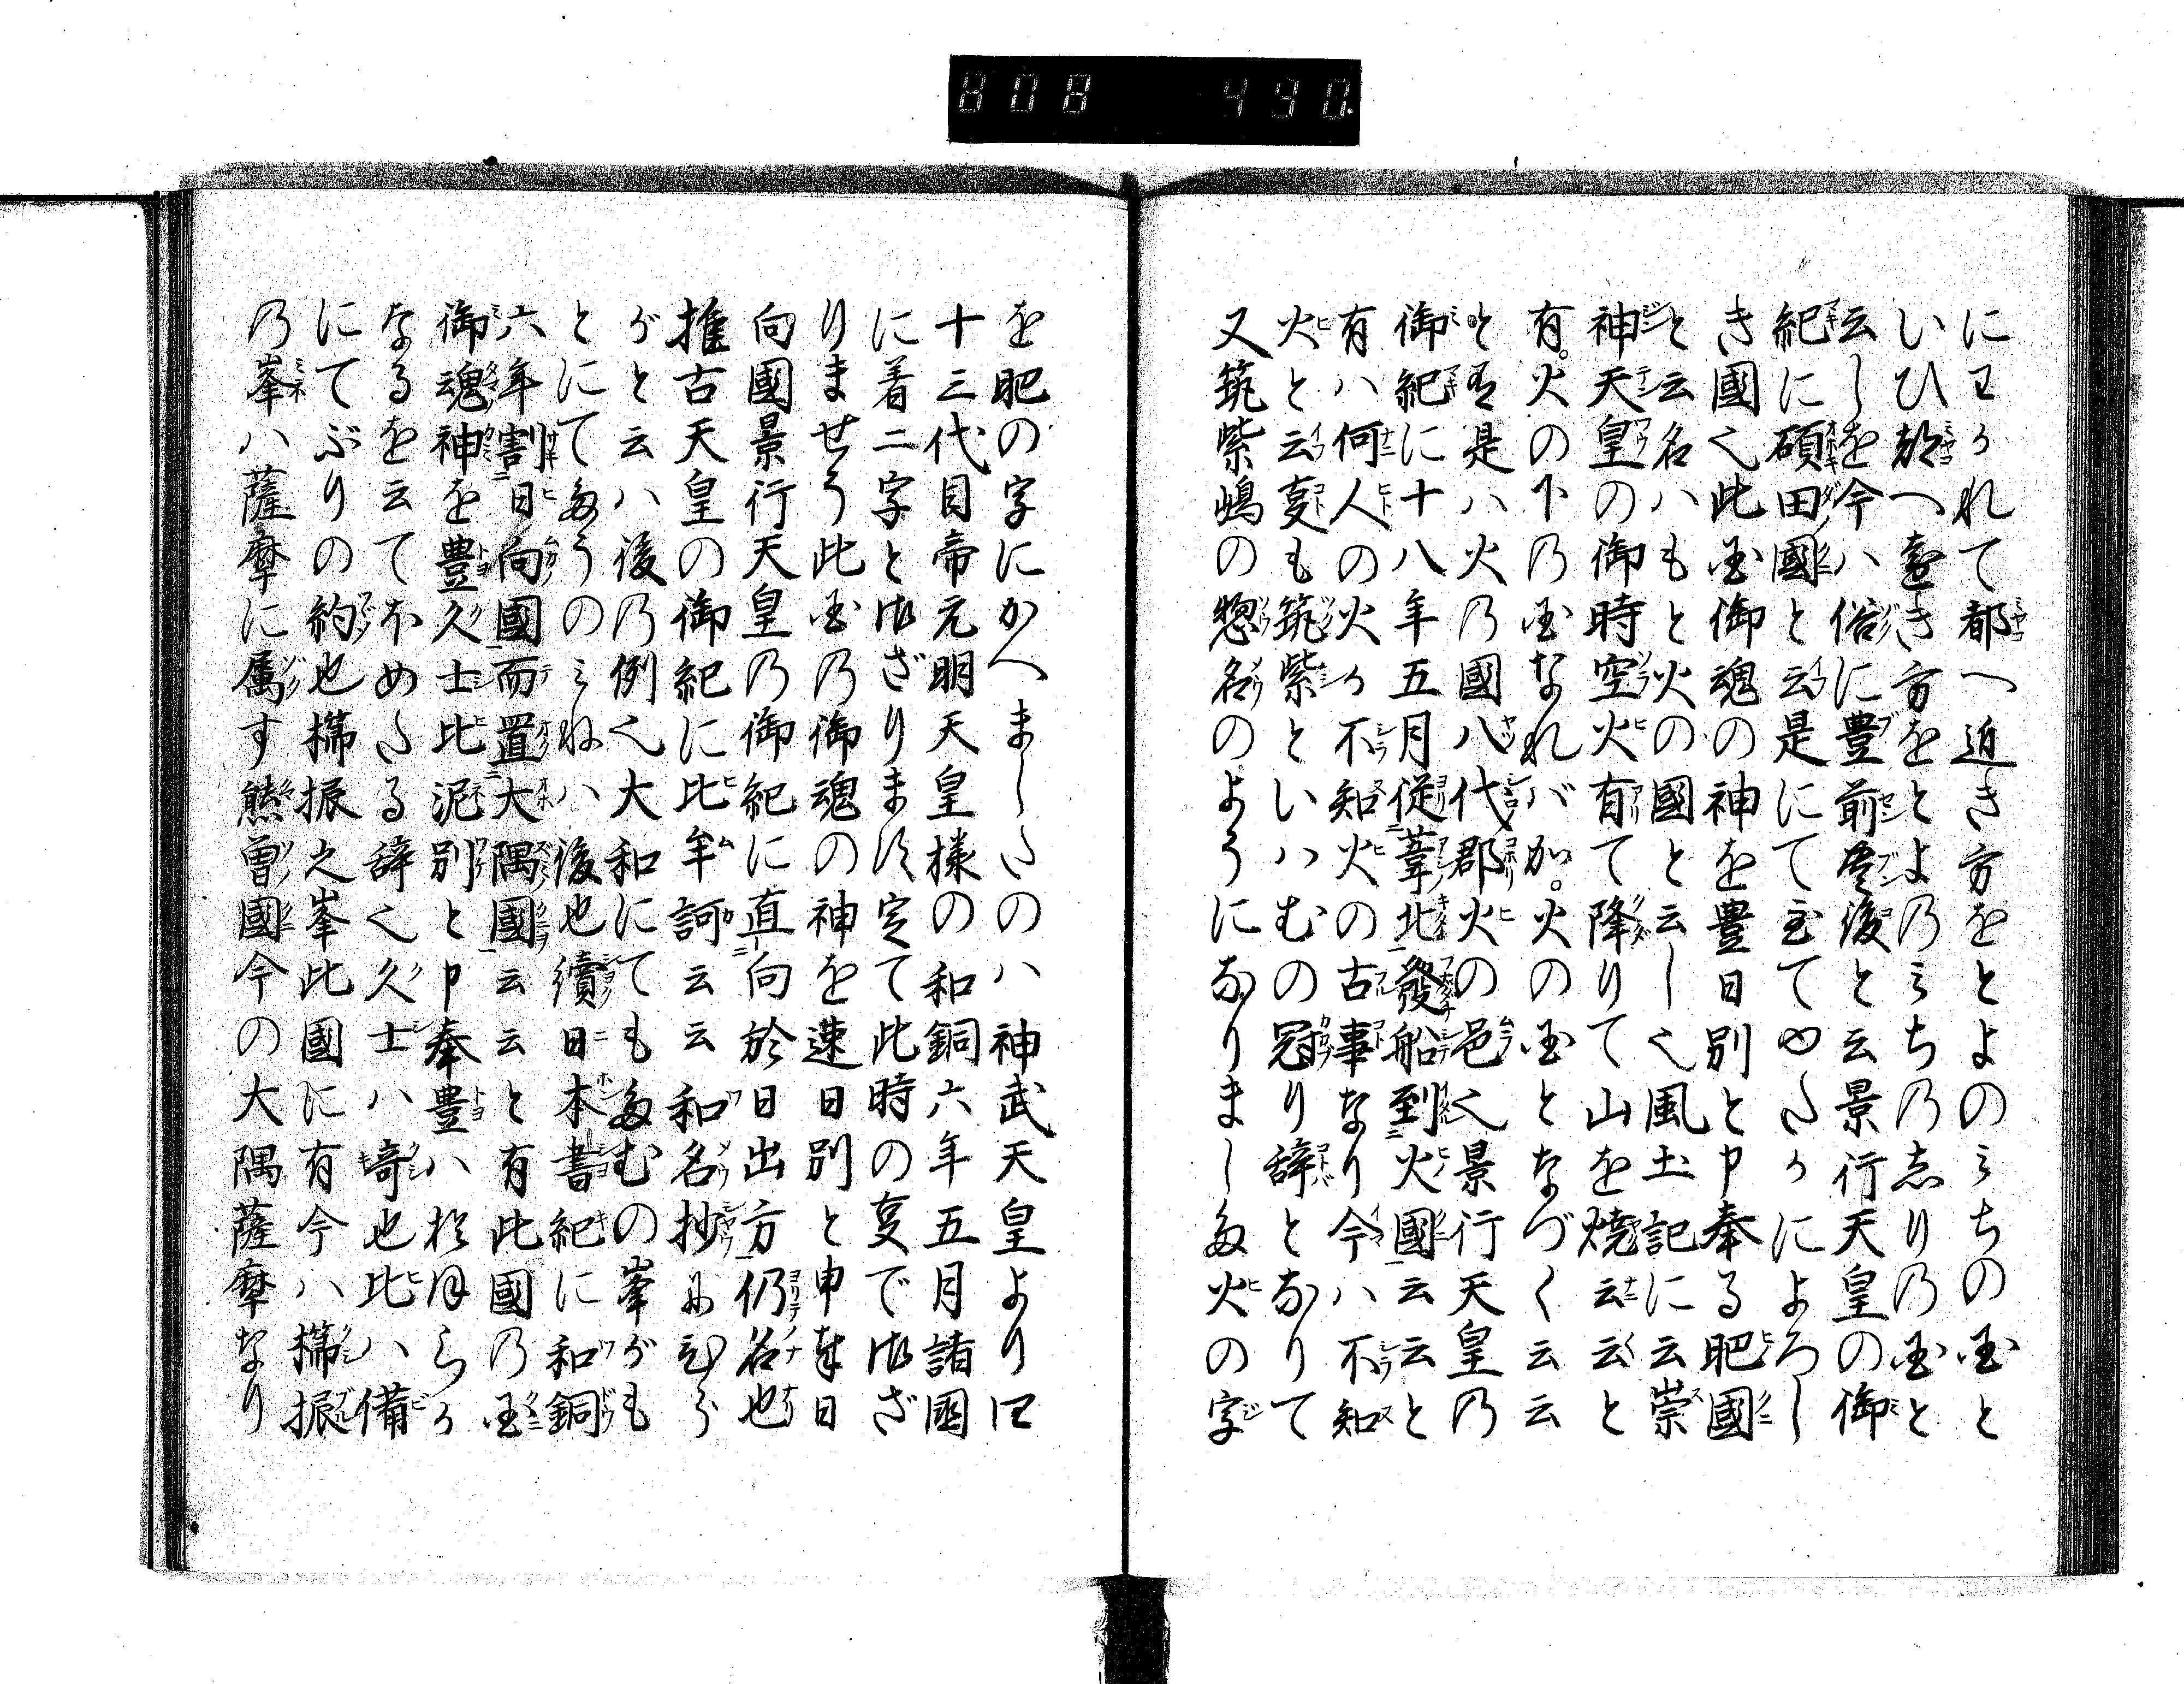 808 490.
にわかれて都へ近き方をとよのみちの国と
いひ都へ遠き方をとよのみちのしりの国と
云しを今ハ俗に豊前豊後と云景行天皇の御
紀に碩田國と云是にて至てゆたかによろし
き國也此国御魂の神を豊日別と申奉る肥國
と云名ハもと火の國と云し也風土記に云崇
神天皇の御時空火有て降りて山を焼云云と
有火の下の国なれバか火の国となづく云云
と有是ハ火の國八代郡火の邑也景行天皇の
御紀に十八年五月従葦北發船到火國云云と
有ハ何人の火か不知火の古事なり今ハ不知
火と云事も筑紫といハむの冠り辞となりて
又筑紫嶋の惣名のようになりました火の字
を肥の字にかへましたのハ神武天皇より四
十三代目帝元明天皇様の和銅六年五月諸國
に着二字と御ざりまして定て此時の事で御ざ
りませう此国の御魂の神を速日別と申奉日
向國景行天皇の御紀に直向於日出方仍名也
推古天皇の御紀に比牟訶云云和名抄にひう
がと云ハ後の例也大和にてもたむの峯がも
とにてたうのみねハ後也續日本書紀に和銅
六年割日向國而置大隅國云云と有此國の国
御魂神を豊久士比泥別と申奉豊ハ於母しろか
なるを云てほめたる辞也久士ハ奇也比ハ備
にてぶりの約也槵振之峯此國に有今ハ槵振
の峯ハ薩摩に属す熊曽國今の大隅薩摩なり